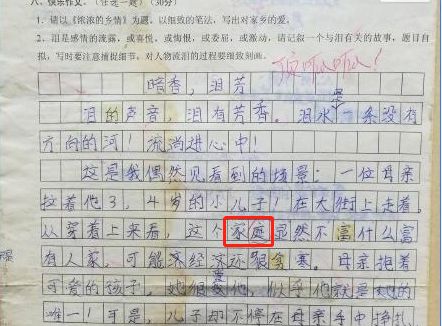 八、快乐作文。(任选一题)(30分)
1. 请以《浓浓的乡情》为题，以细致的笔法，写出对家乡的爱。
2. 泪是感情的流露，或喜悦，或悔恨，或委屈，或激动，请记叙一个与泪有关的故事，题目自
拟，写时要注意捕捉细节，对人物流泪的过程要细致刻画。
暗香，泪芳
泪的声音，泪有芳香。泪水是一条没有
方向的河！流淌进心中！
这是我偶然见看到的场景：一位母亲
拉着他3，4岁的小儿子！在大街上走着。
从穿着上来看，这个家庭显然不富什么富
有人家，可能济经济还很贫寒。母亲抱着
可爱的孩子，她很爱他，似乎他就是她的
唯一！可是，儿子却不停在母亲手中挣扎